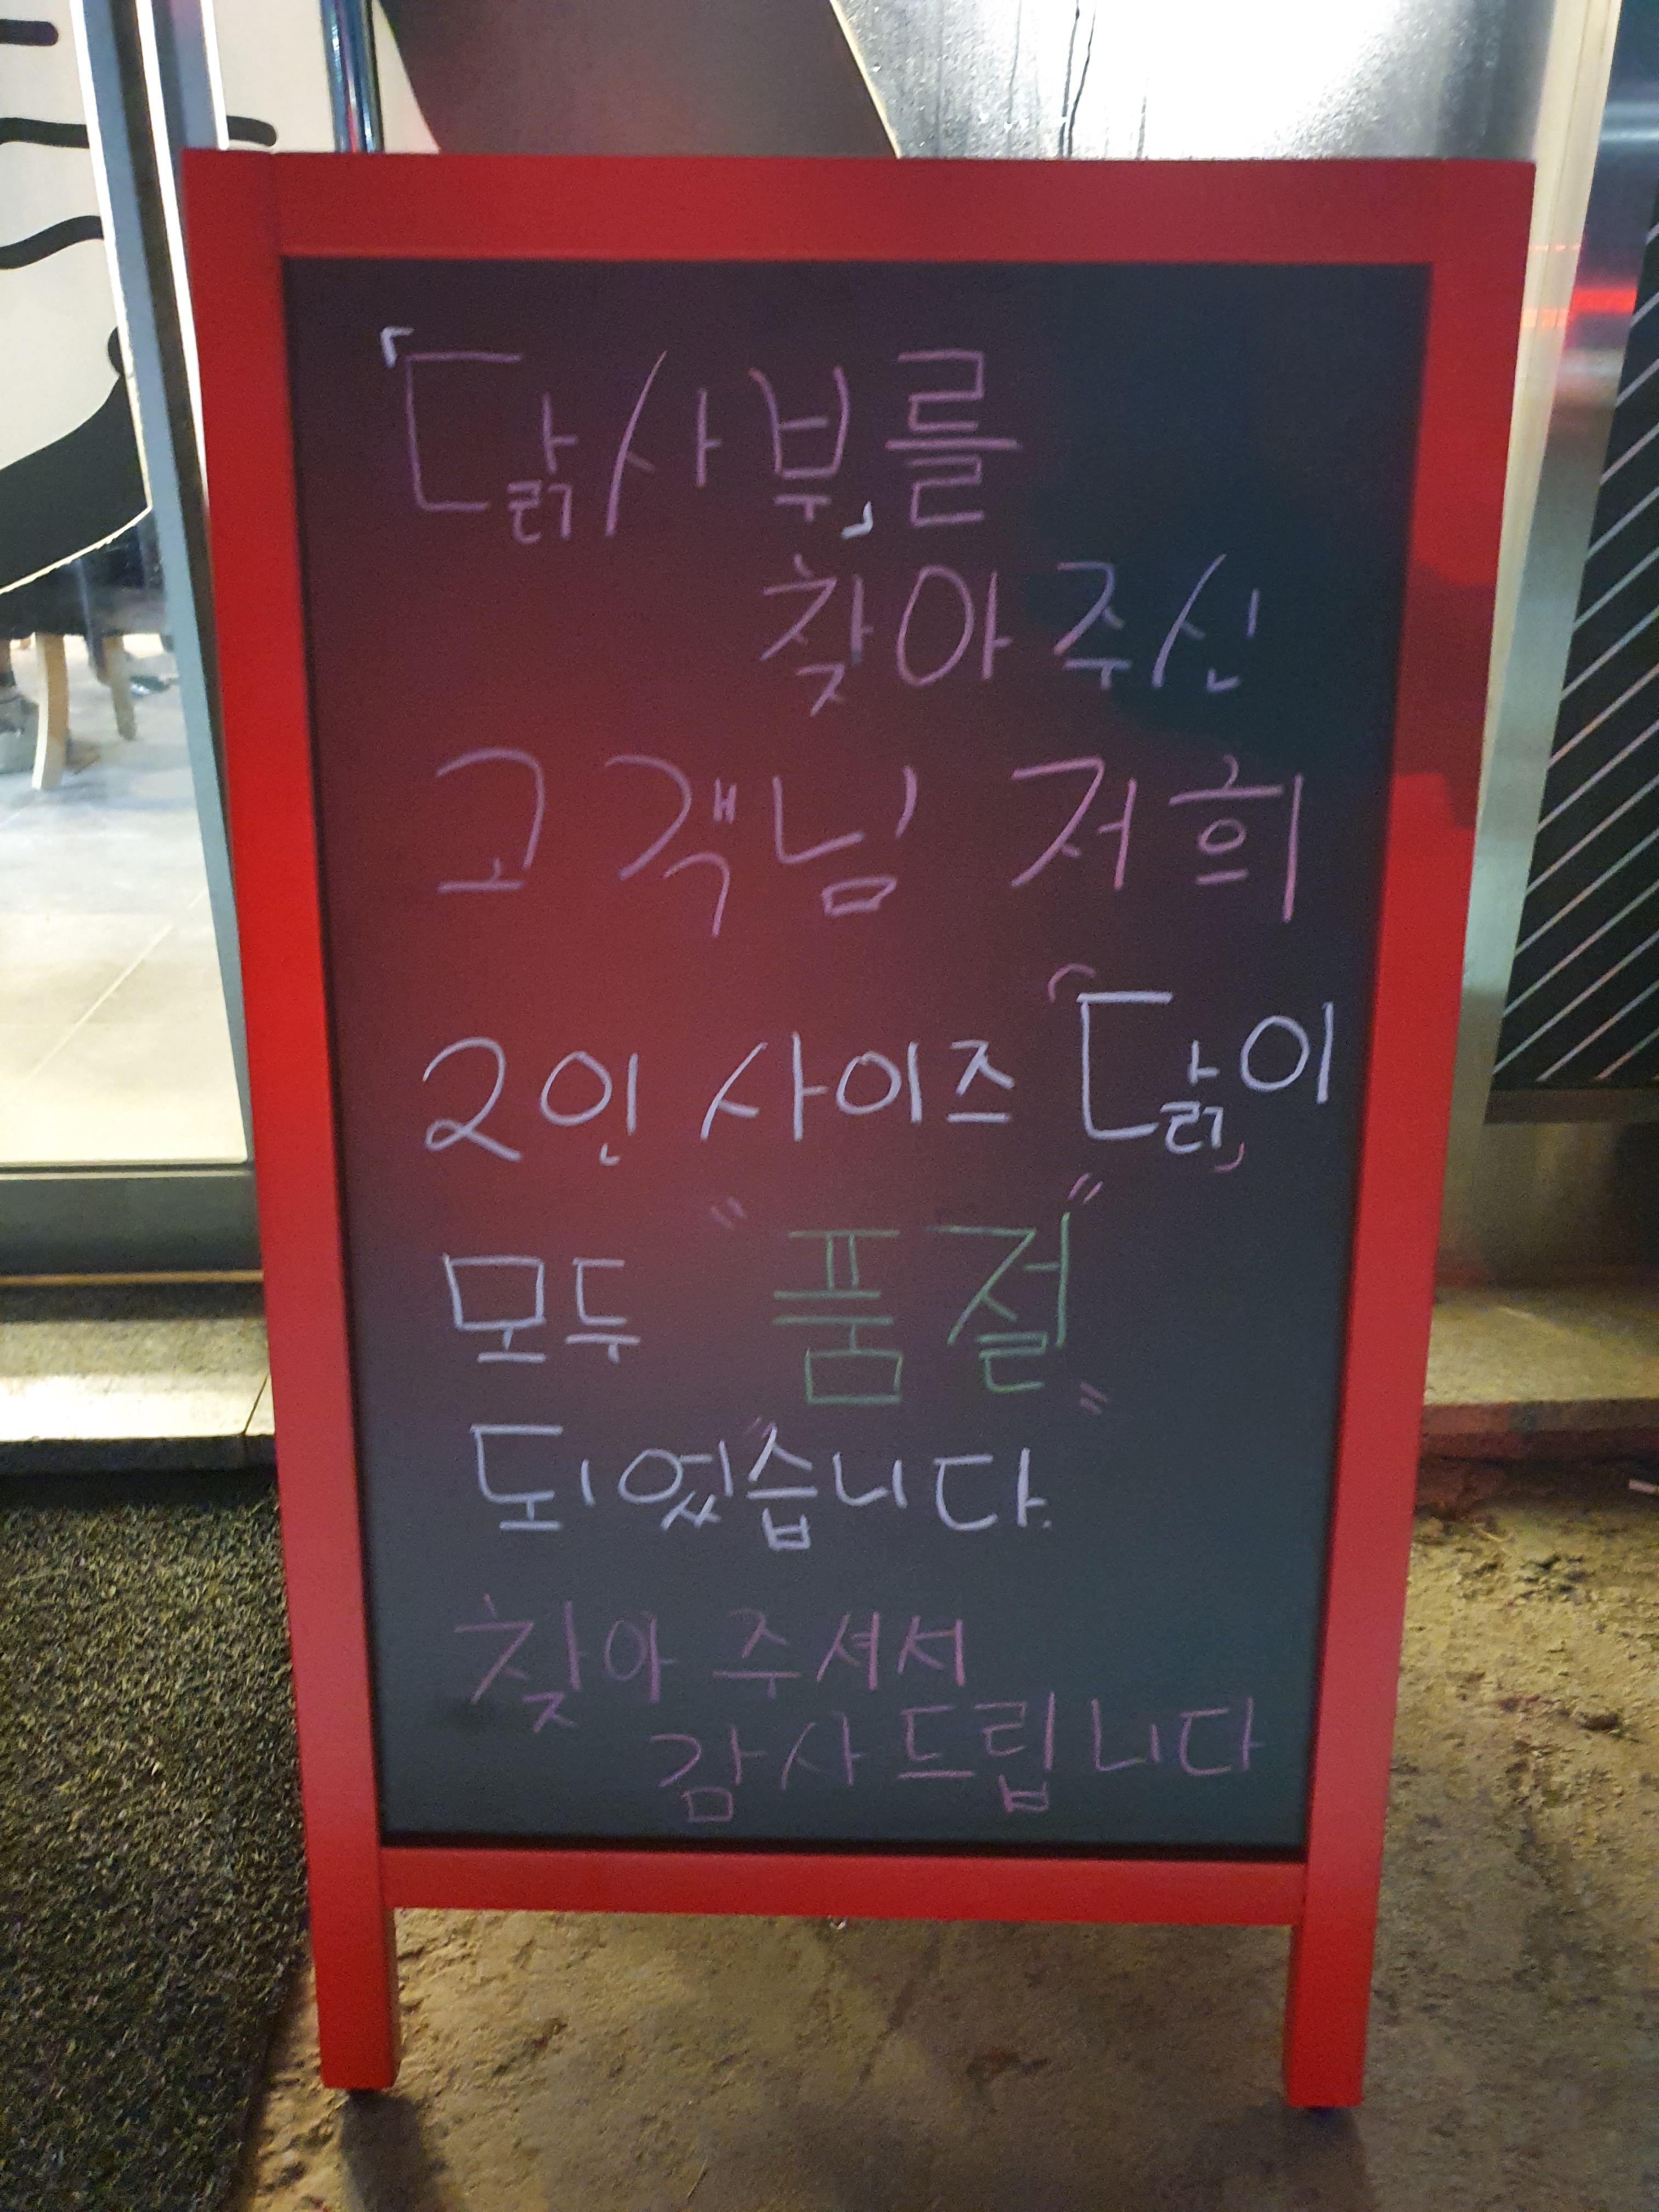 「닭사부」를
찾아주신
고객님 저희
2인 사이즈 「닭」이
모두 "품절"
되었습니다.
찾아 주셔서
감사드립니다